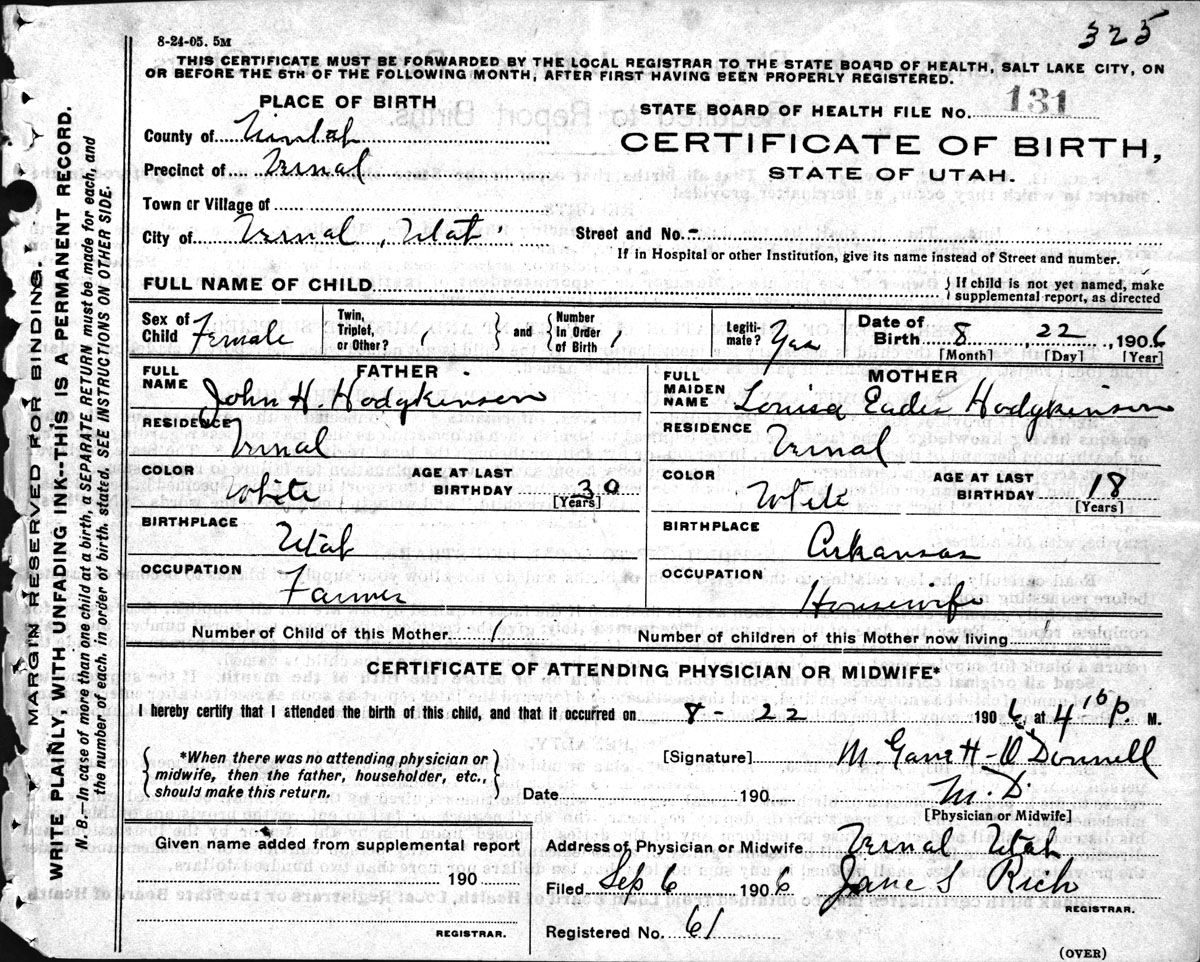 325
8-24-05. 5M
THIS CERTIFICATE MUST BE FORWARDED BY THE LOCAL REGISTRAR TO THE STATE BOARD OF HEALTH, SALT LAKE CITY, ON
OR BEFORE THE 5TH OF THE FOLLOWING MONTH, AFTER FIRST HAVING BEEN PROPERLY REGISTERED.
PLACE OF BIRTH
STATE BOARD OF HEALTH FILE No. 131
County of Uintah
CERTIFICATE OF BIRTH,
Precinct of Vernal
STATE OF UTAH.
Town or Village of
City of Vernal, Utah. Street and No.-
If in Hospital or other Institution, give its name instead of Street and number.
FULL NAME OF CHILD } If child is not yet named, make supplemental report, as directed
Sex of Child Female Twin, Triplet, or Other? 1 } and { Number In Order of Birth 1 Legiti-mate? Yes Date of Birth 8 22 1906
[Month] [Day] [Year]
FATHER
FULL NAME John H. Hodgkinson
MOTHER
FULL MAIDEN NAME Louisa Eades Hodgkinson
RESIDENCE Vernal
RESIDENCE Vernal
COLOR White AGE AT LAST BIRTHDAY 30 [Years]
COLOR White AGE AT LAST BIRTHDAY 18 [Years]
BIRTHPLACE Utah
BIRTHPLACE Arkansas
OCCUPATION Farmer
OCCUPATION Housewife
Number of Child of this Mother 1 Number of children of this Mother now living 1
CERTIFICATE OF ATTENDING PHYSICIAN OR MIDWIFE*
I hereby certify that I attended the birth of this child, and that it occurred on 8-22 1906, at 4 10 P. M.
*When there was no attending physician or
midwife, then the father, householder, etc.,
should make this return.
[Signature] H. O'Donnell
Date 190 M.D.
[Physician or Midwife]
Given name added from supplemental report
190
REGISTRAR.
Address of Physician or Midwife Vernal Utah
Filed Sep 6 1906 Jane S Rich
REGISTRAR.
Registered No. 61
(OVER)
MARGIN RESERVED FOR BINDING.
WRITE PLAINLY, WITH UNFADING INK--THIS IS A PERMANENT RECORD.
N. B.--In case of more than one child at a birth, a SEPARATE RETURN must be made for each, and
the number of each, in order of birth, stated. SEE INSTRUCTIONS ON OTHER SIDE.